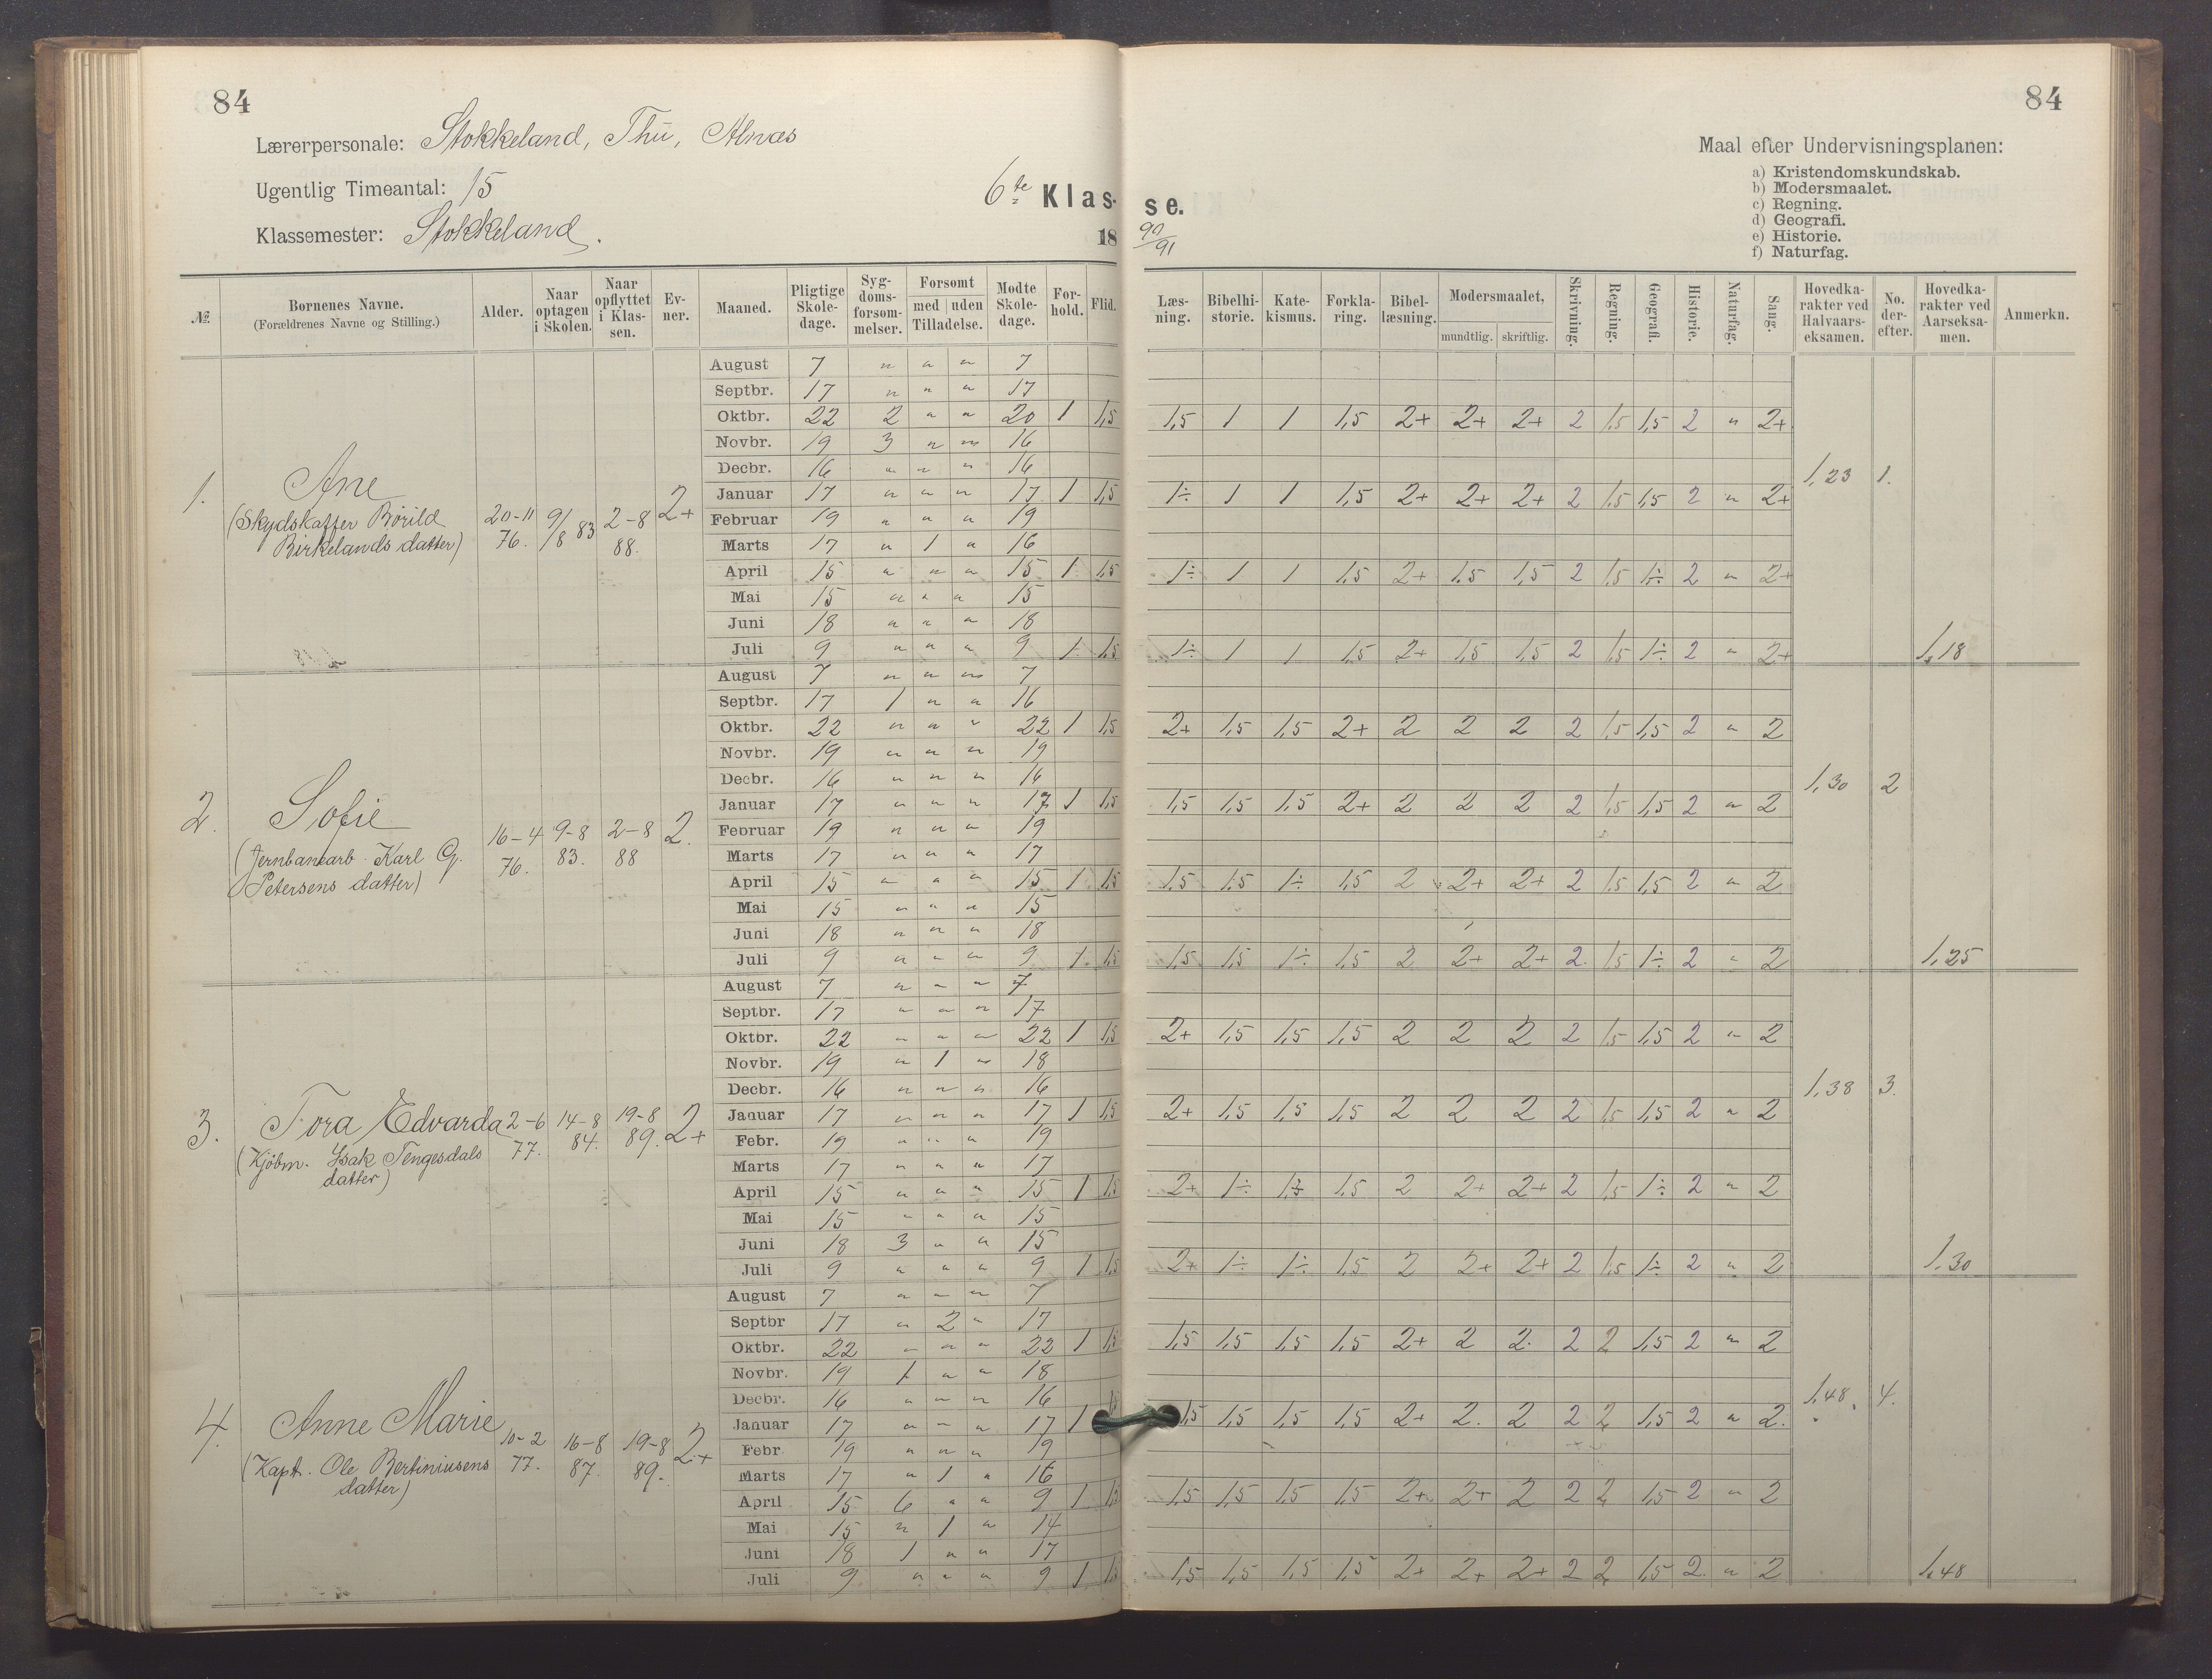 84
84
Lærerpersonale: Stokkeland, Thu, Alnæs
Ugentlig Timeantal: 15
Klassemester: Stokkeland.
6te Klas-se.
18 90/91
Maal efter Undervisningsplanen:
a) Kristendomskundskab.
b) Modersmaalet.
c) Regning.
d) Geografi.
e) Historie.
f) Naturfag.
№ | Børnenes Navne. (Forældrenes Navne og Stilling.) | Alder. | Naar optagen i Skolen. | Naar opflyttet i Klassen. | Evner. | Maaned. | Pligtige Skoledage. | Sygdomsforsømmelser. | Forsømt med Tilladelse. | uden Tilladelse. | Mødte Skoledage. | Forhold. | Flid. | Læsning. | Bibelhistorie. | Katekismus. | Forklaring. | Bibellæsning. | Modersmaalet, mundtlig. | skriftlig. | Skrivning. | Regning. | Geografi. | Historie. | Naturfag. | Sang. | Hovedkarakter ved Halvaarseksamen. | No. derefter. | Hovedkarakter ved Aarseksamen. | Anmerkn.
1. Ane
(Skydskaffer Börild
Birkelands datter)
20-11 76. 9/8 83 2-8 88. 2+
August 7 " " " 7
Septbr. 17 " " " 17
Oktbr. 22 2 " " 20 1 1,5 1,5 1 1 1,5 2+ 2+ 2+ 2 1,5 1,5 2 " 2+
Novbr. 19 3 " " 16
Decbr. 16 " " " 16 1,23 1.
Januar 17 " " " 17 1 1,5 1÷ 1 1 1,5 2+ 2+ 2+ 2 1,5 1,5 2 " 2+
Februar 19 " " " 19
Marts 17 " 1 " 16
April 15 " " " 15 1 1,5 1÷ 1 1 1,5 2+ 1,5 1,5 2 1,5 1÷ 2 " 2+
Mai 15 " " " 15
Juni 18 " " " 18
Juli 9 " " " 9 1 1,5 1÷ 1 1 1,5 2+ 1,5 1,5 2 1,5 1÷ 2 " 2+ 1,18
2. Sofie
(Jernbanearb. Karl G.
Petersens datter)
16-4 76. 9-8 83. 2-8 88 2.
August 7 " " " 7
Septbr. 17 1 " " 16
Oktbr. 22 " " " 22 1 1,5 2+ 1,5 1,5 2+ 2 2 2 2 1,5 1,5 2 " 2
Novbr. 19 " " " 19
Decbr. 16 " " " 16 1,30 2
Januar 17 " " " 17 1 1,5 1,5 1,5 1,5 2+ 2 2 2 2 1,5 1,5 2 " 2
Februar 19 " " " 19
Marts 17 " " " 17
April 15 " " " 15 1 1,5 1,5 1,5 1÷ 1,5 2 2+ 2+ 2 1,5 1,5 2 " 2
Mai 15 " " " 15
Juni 18 " " " 18
Juli 9 " " " 9 1 1,5 1,5 1,5 1÷ 1,5 2 2+ 2+ 2. 1,5 1÷ 2 " 2 1,25
3. Tora Edvarda
(Kjöbm. Isak Tengesdals
datter)
2-6 77. 14-8 84. 19-8 89. 2+
August 7 " " " 7
Septbr. 17 " " " 17
Oktbr. 22 " " " 22 1 1,5 2+ 1,5 1,5 1,5 2 2 2 2 1,5 1,5 2 " 2
Novbr. 19 " 1 " 18
Decbr. 16 " " " 16 1,38 3.
Januar 17 " " " 17 1 1,5 2+ 1,5 1,5 1,5 2 2 2 2 1,5 1,5 2 " 2
Febr. 19 " " " 19
Marts 17 " " " 17
April 15 " " " 15 1 1,5 2+ 1÷ 1÷ 1,5 2 2+ 2+ 2 1,5 1÷ 2 " 2
Mai 15 " " " 15
Juni 18 3 " " 15
Juli 9 " " " 9 1 1,5 2+ 1÷ 1÷ 1,5 2 2+ 2+ 2 1,5 1÷ 2 " 2 1,30
4. Anne Marie
(Kapt. Ole Bertiniusens
datter)
10-2 77. 16-8 87. 19-8 89. 2+
August 7 " " " 7
Septbr 17 " 2 " 17
Oktbr. 22 " " " 22 1 1,5 1,5 1,5 1,5 1,5 2+ 2 2. 2 2 1,5 2 " 2
Novbr. 19 1 " " 18
Decbr. 16 " " " 16 1,48. 4.
Januar 17 " " " 17 1 1,5 1,5 1,5 1,5 2+ 2. 2 2 2 1,5 2 " 2.
Febr 19 " " " 19
Marts 17 " 1 " 16
April 15 6 " " 9 1 1,5 1,5 1,5 1,5 1,5 2+ 2+ 2 2 2 1,5 2 " 2
Mai 15 " 1 " 14
Juni 18 1 " " 17
Juli 9 " " " 9 1 1,5 1,5 1,5 1,5 1,5 2+ 2+ 2+ 2 2 1,5 2. " 2 1,48